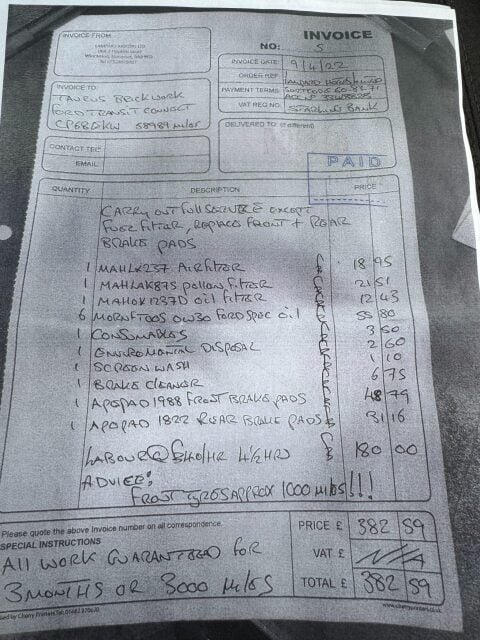 INVOICE
INVOICE FROM
NO: 5
INVOICE DATE 9/4/22
ORDER REF
PAYMENT TERMS
VAT REG NO. STARLING BANK
INVOICE TO
TAURUS BRICKWORK
FORD TRANSIT CONNECT
58989 miles
DELIVERED TO (if different)
CONTACT TEL:
EMAIL
PAID
QUANTITY DESCRIPTION PRICE
CARRY OUT FULL SERVICE EXCEPT
FUEL FILTER, REPLACE FRONT + REAR
BRAKE PADS
1 MAHLX257 Air filter £ 18 95
1 MAHLAK875 pollen filter £ 21 51
1 MAHOX1237D oil filter £ 12 43
6 MORNFT005 0W30 FORD SPEC oil £ 55 80
1 CONSUMABLES £ 3 50
1 ENVIROMENTAL DISPOSAL £ 2 60
1 SCREEN WASH £ 1 10
1 BRAKE CLEANER £ 6 75
1 APOPAD1988 FRONT BRAKE PADS £ 48 79
1 APOPAD 1822 REAR BRAKE PADS £ 31 16
LABOUR @ £40/HR 4 1/2 HRS £ 180 00
ADVICE:
FRONT TYRES APPROX 1000 miles!!!
Please quote the above Invoice number on all correspondence.
SPECIAL INSTRUCTIONS
ALL WORK GUARANTEED FOR
3 MONTHS OR 3000 miles
PRICE £ 382 59
VAT £ N/A
TOTAL £ 382 59
www.cherryprinters.co.uk